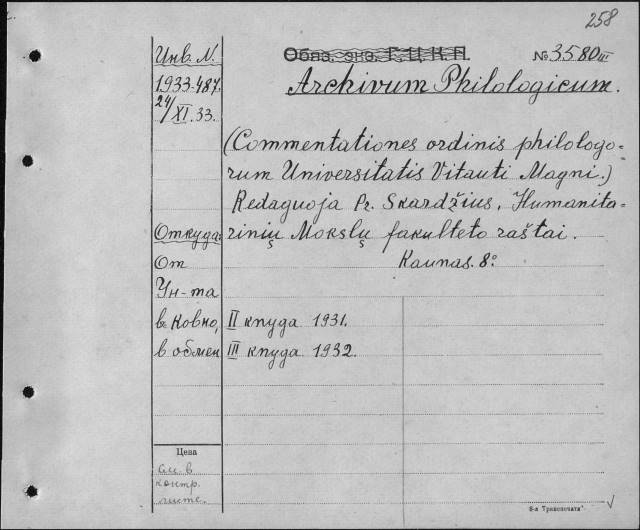 258
Инв. N.
Обяз. экз. Г.Ц.К.П.
№ 3580 III
1933-487.
Archivum Philologicum.
24/XI.33.
(Commentationes ordinis philologo-
rum Universitatis Vitauti Magni.)
Redaguoja Pr. Skardžius, Humanita-
Откуда:
rinių Mokslų fakulteto raštai.
От
Kaunas. 8º
Ун-та
в Ковно,
II knyga 1931.
в обмен
III knyga 1932.
Цена
см. в
контр.
листе.
8-я Транспечать